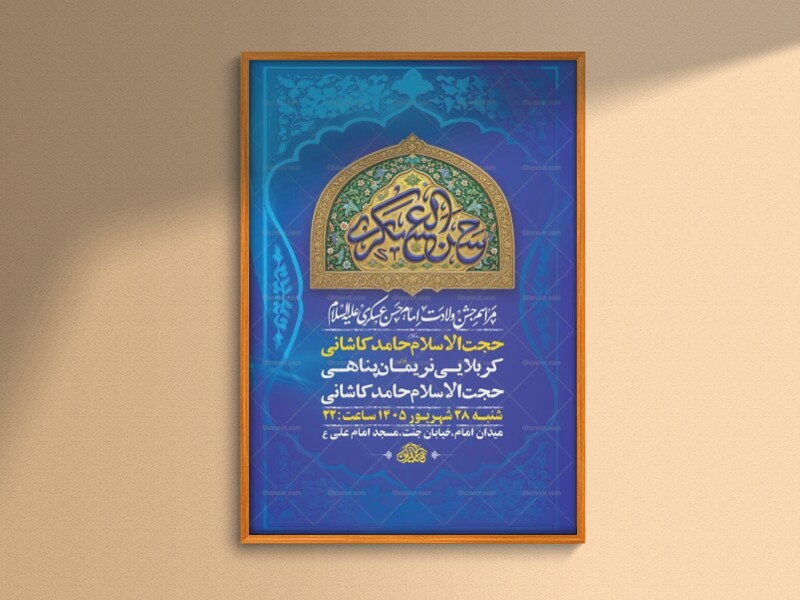 حسن العسکری
مراسم جشن ولادت امام حسن عسکری علیه السلام
حجت الاسلام حامد کاشانی
کربلایی نریمان پناهی
حجت الاسلام حامد کاشانی
شنبه ۲۸ شهریور ۱۴۰۵ ساعت: ۲۲
میدان امام، خیابان جنت، مسجد امام علی ع